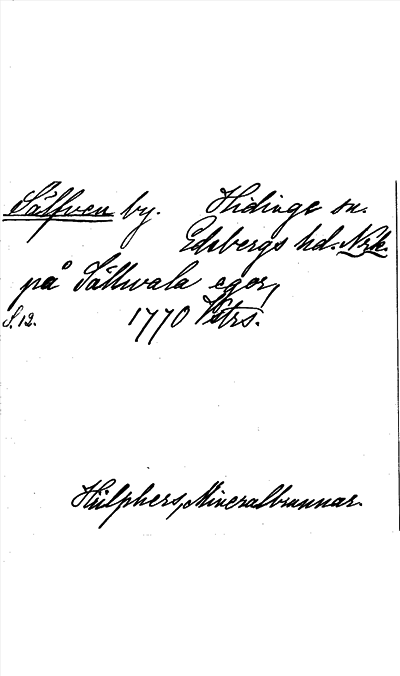 Sälfven by. Hidinge sn.
Edsbergs hd. Nrk.
på Sällwala egor,
S. 12. 1770 Vstrs.
Hülphers, Mineralbrunnar.